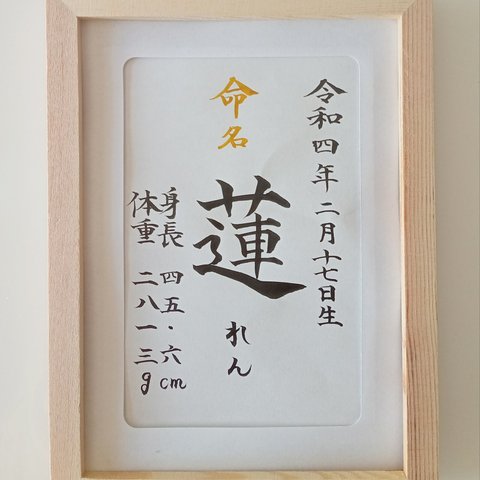 令和四年二月十七日生
命名
蓮
れん
身長 四五・六cm
体重 二八一三g